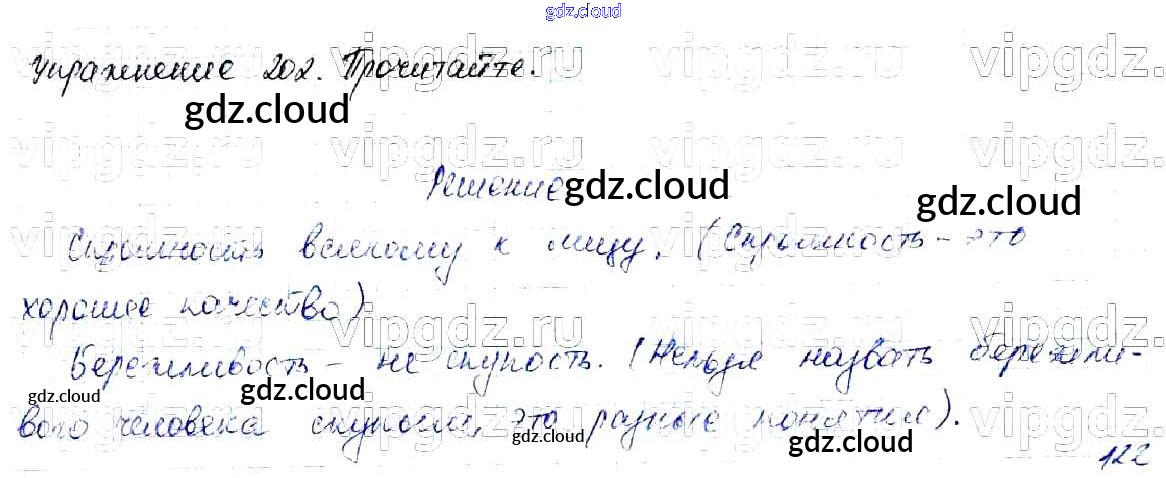 gdz.cloud
Упражнение 202. Прочитайте.
gdz.cloud
Решение gdz.cloud
gdz.cloud
Скромность всякому к лицу. (Скромность - это
хорошее качество)
Бережливость - не скупость. (Нельзя назвать бережли-
gdz.cloud gdz.cloud
вого человека скупым, это разные понятия).
gdz.cloud gdz.cloud
122
vipgdz.ru vipgdz.ru vipgdz.ru vipgdz.ru